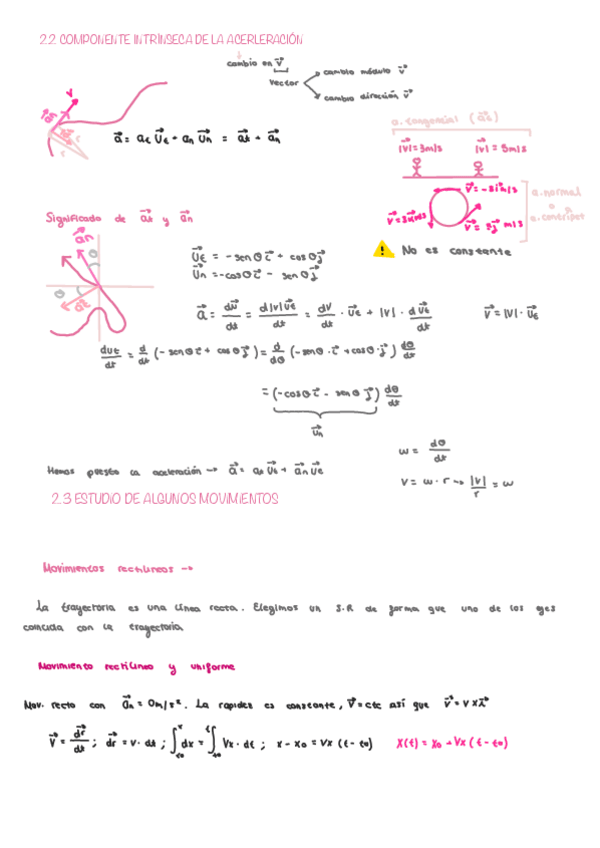 2.2. COMPONENTE INTRÍNSECA DE LA ACERLERACIÓN
cambio en v⃗
vector
cambio módulo v⃗
cambio dirección v⃗
v
an
r
r
a⃗ = at u⃗t + an u⃗n = a⃗t + a⃗n
a. tangencial (a⃗t)
|v⃗| = 3m/s |v⃗| = 5m/s
a. normal
o
a. centrípet
v⃗ = 5j⃗ m/s
Significado de a⃗t y a⃗n
a⃗n
θ
θ
a⃗t
u⃗t = - sen θ i⃗ + cos θ j⃗
u⃗n = - cos θ i⃗ - sen θ j⃗
! No es constante
a⃗ = dv⃗/dt = d|v|u⃗t/dt = dv/dt · u⃗t + |v| · du⃗t/dt v⃗ = |v| · u⃗t
dut/dt = d/dt (- sen θ i⃗ + cos θ j⃗) = d/dθ (- sen θ · i⃗ + cos θ · j⃗) dθ/dt
= (- cos θ i⃗ - sen θ j⃗) dθ/dt
u⃗n
w = dθ/dt
v = w · r → |v|/r = w
Hemos puesto la aceleración → a⃗ = an u⃗t + a⃗n u⃗e
2.3 ESTUDIO DE ALGUNOS MOVIMIENTOS
Movimientos rectilíneos →
La trayectoria es una línea recta. Elegimos un S.R de forma que uno de los ejes
coincida con la trayectoria.
Movimiento rectilíneo y uniforme
Mov. recto con a⃗n = 0m/s². La rapidez es constante, v⃗ = cte así que v⃗ = v x i⃗
v⃗ = dr⃗/dt ; dr⃗ = v · dt ; ∫dx = ∫ Vx · dt ; x - x0 = Vx (t - t0) X(t) = X0 + Vx (t - t0)